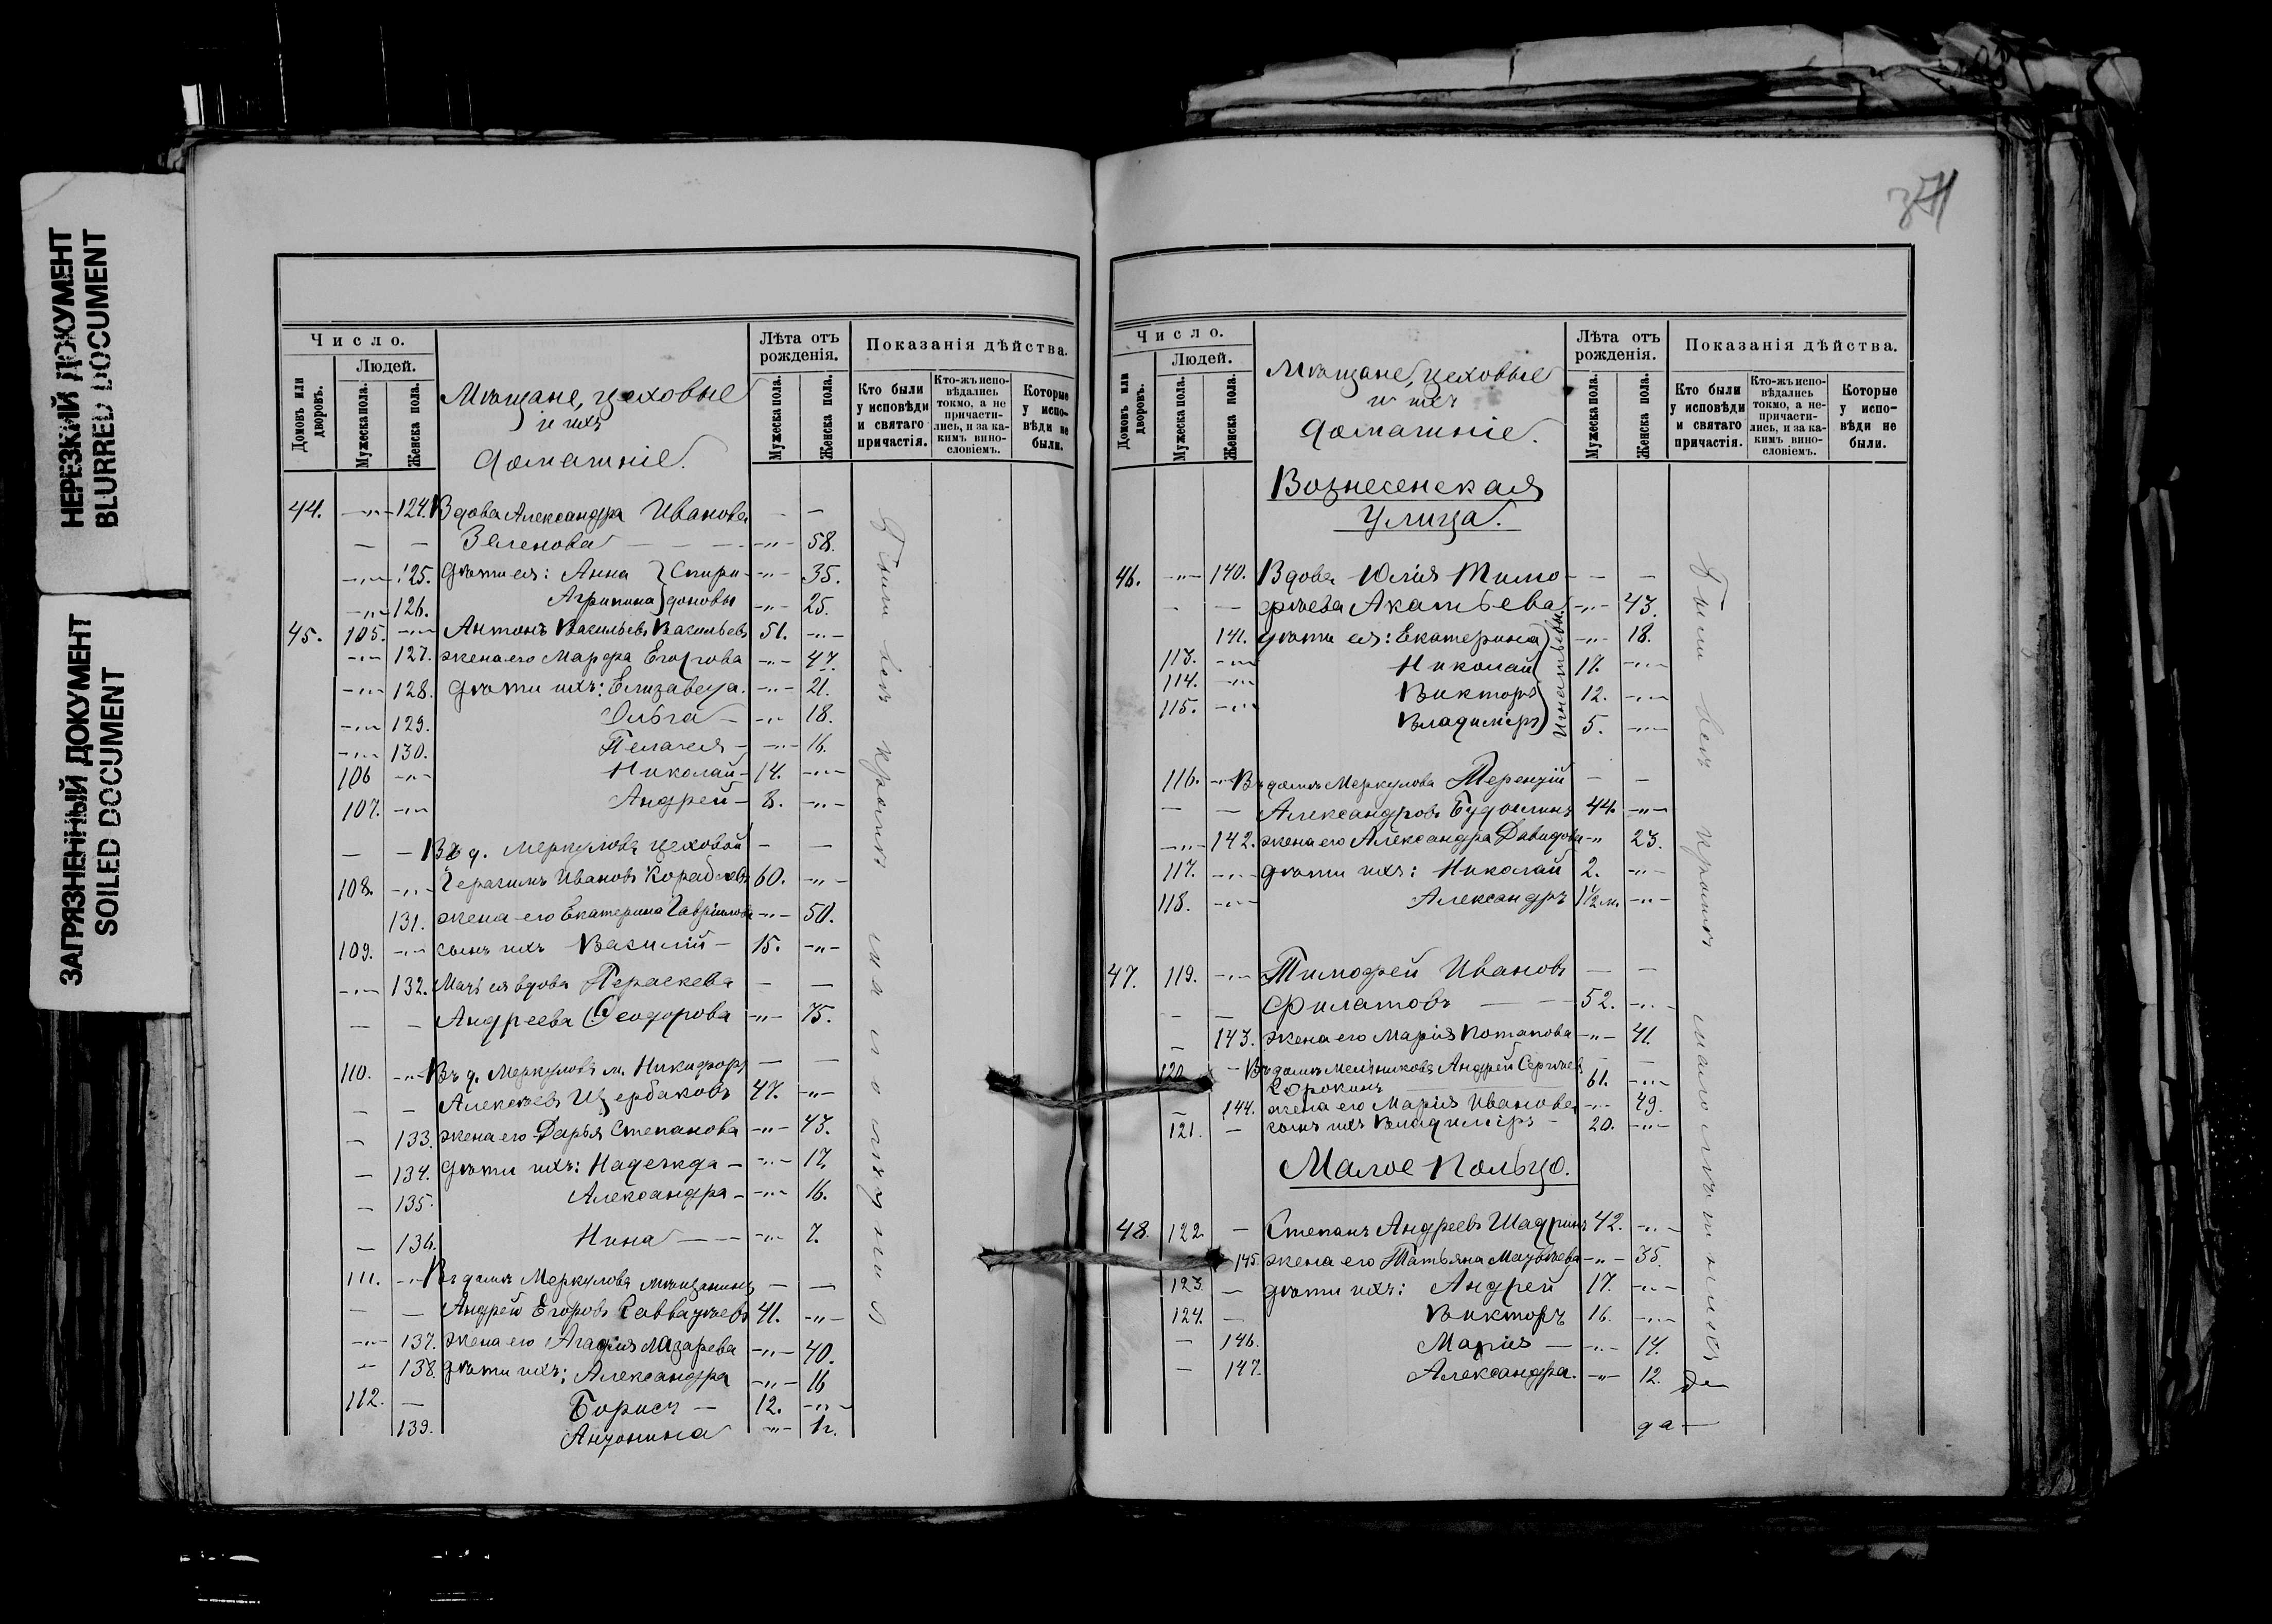 НЕРЕЗКИЙ ДОКУМЕНТ
BLURRED DOCUMENT
ЗАГРЯЗНЕННЫЙ ДОКУМЕНТ
SOILED DOCUMENT
Число.
Людей.
Домовъ или дворовъ.
Мужеска пола.
Женска пола.
Мѣщане, цеховые
и ихъ
домашніе.
Лѣта отъ рожденія.
Мужеска пола.
Женска пола.
Показанія дѣйства.
Кто были у исповѣди и святаго причастія.
Кто-жъ исповѣдались токмо, а не причастились, и за какимъ винословіемъ.
Которые у исповѣди не были.
44. —"— 124. Вдова Александра Иванова — —
— — Зеленова — — — —"— 58.
—"— 125. Дѣти ея: Анна } Спири- —"— 35.
—"— 126. Агрипина } доновы —"— 25.
45. 105. —"— Антонъ Васильевъ Васильевъ 51. —"—
—"— 127. жена его Марфа Егорова —"— 47.
—"— 128. Дѣти ихъ: Елизавета. —"— 21.
—"— 129. Ольга — —"— 18.
—"— 130. Пелагея — —"— 16.
106 —"— Николай — 14. —"—
107. —"— Андрей — 8. —"—
— — Въ д. Меркулова цеховой — —
108. —"— Герасимъ Ивановъ Кораблевъ 60. —"—
131. жена его Екатерина Гавріилова —"— 50.
109. —"— сынъ ихъ Василій — 15. —"—
—"— 132. Мать ея вдова Параскева — —
— — Андреева Ѳеодорова —"— 75.
110. —"— Въ д. Меркулова м. Никифоръ — —
— — Алексѣевъ Щербаковъ 47. —"—
— 133. жена его Дарья Степанова —"— 43.
— 134. Дѣти ихъ: Надежда — —"— 17.
— 135. Александра — —"— 16.
— 136. Нина — — —"— 7.
111. —"— Въ домѣ Меркулова мѣщанинъ — —
— — Андрей Егоровъ Савватѣевъ 41. —"—
—"— 137. жена его Агафія Лазарева —"— 40.
—"— 138. дѣти ихъ: Александра —"— 16
112. — Борисъ — 12. —"—
139. Антонина —"— 1 г.
Были всѣ кромѣ
Число.
Людей.
Домовъ или дворовъ.
Мужеска пола.
Женска пола.
Мѣщане, цеховые
и ихъ
домашніе.
Лѣта отъ рожденія.
Мужеска пола.
Женска пола.
Показанія дѣйства.
Кто были у исповѣди и святаго причастія.
Кто-жъ исповѣдались токмо, а непричастились, и за какимъ винословіемъ.
Которые у исповѣди не были.
Вознесенская
Улица.
46. —"— 140. Вдова Юлія Тимо- — —
— — фѣева Акатьева —"— 43.
141. дѣти ея: Екатерина —"— 18.
113. —"— Николай 17. —"—
114. —"— Викторъ 12. —"—
115. —"— Владиміръ 5. —"—
116. —"— Въ домѣ Меркулова Терентій — —
— — Александровъ 44. —"—
—"— 142. жена его Александра Давидова —"— 23.
117. —"— дѣти ихъ: Николай 2. —"—
118. —"— Александръ 1½ м. —"—
47. 119. —"— Тимофей Ивановъ — —
— — Филатовъ — — 52. —"—
— 143. жена его Марія Потапова —"— 41.
120 — Въ домѣ Мельникова Андрей Сергѣевъ — —
Сорокинъ 61. —"—
— 144. жена его Марія Иванова —"— 49.
121. — сынъ ихъ Владиміръ — 20. —"—
Малое Кольцо.
48. 122. — Степанъ Андреевъ Шадринъ 42. —"—
145. жена его Татьяна Матвѣева —"— 35.
123. — дѣти ихъ: Андрей 17. —"—
124. — Викторъ 16. —"—
— 146. Марія — —"— 14.
— 147. Александра. —"— 12.
Были всѣ кромѣ малолѣтнихъ
да —